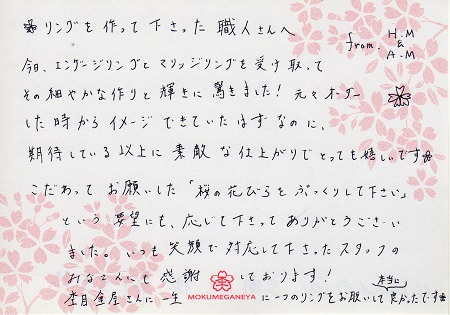 リングを作って下さった職人さんへ
from. H.M
&
A.M
今日、エンゲージリングとマリッジリングを受け取って
その細やかな作りと輝きに驚きました！元々オーダー
した時からイメージできていたはずなのに、
期待している以上に素敵な仕上がりでとっても嬉しいです
こだわってお願いした「桜の花びらをぷっくりして下さい」
という要望にも、応じて下さってありがとうござい
ました。いつも笑顔で対応して下さったスタッフの
みなさんにも感謝しております！
杢目金屋さんに一生に一つのリングをお願いして本当に良かったです
MOKUMEGANEYA